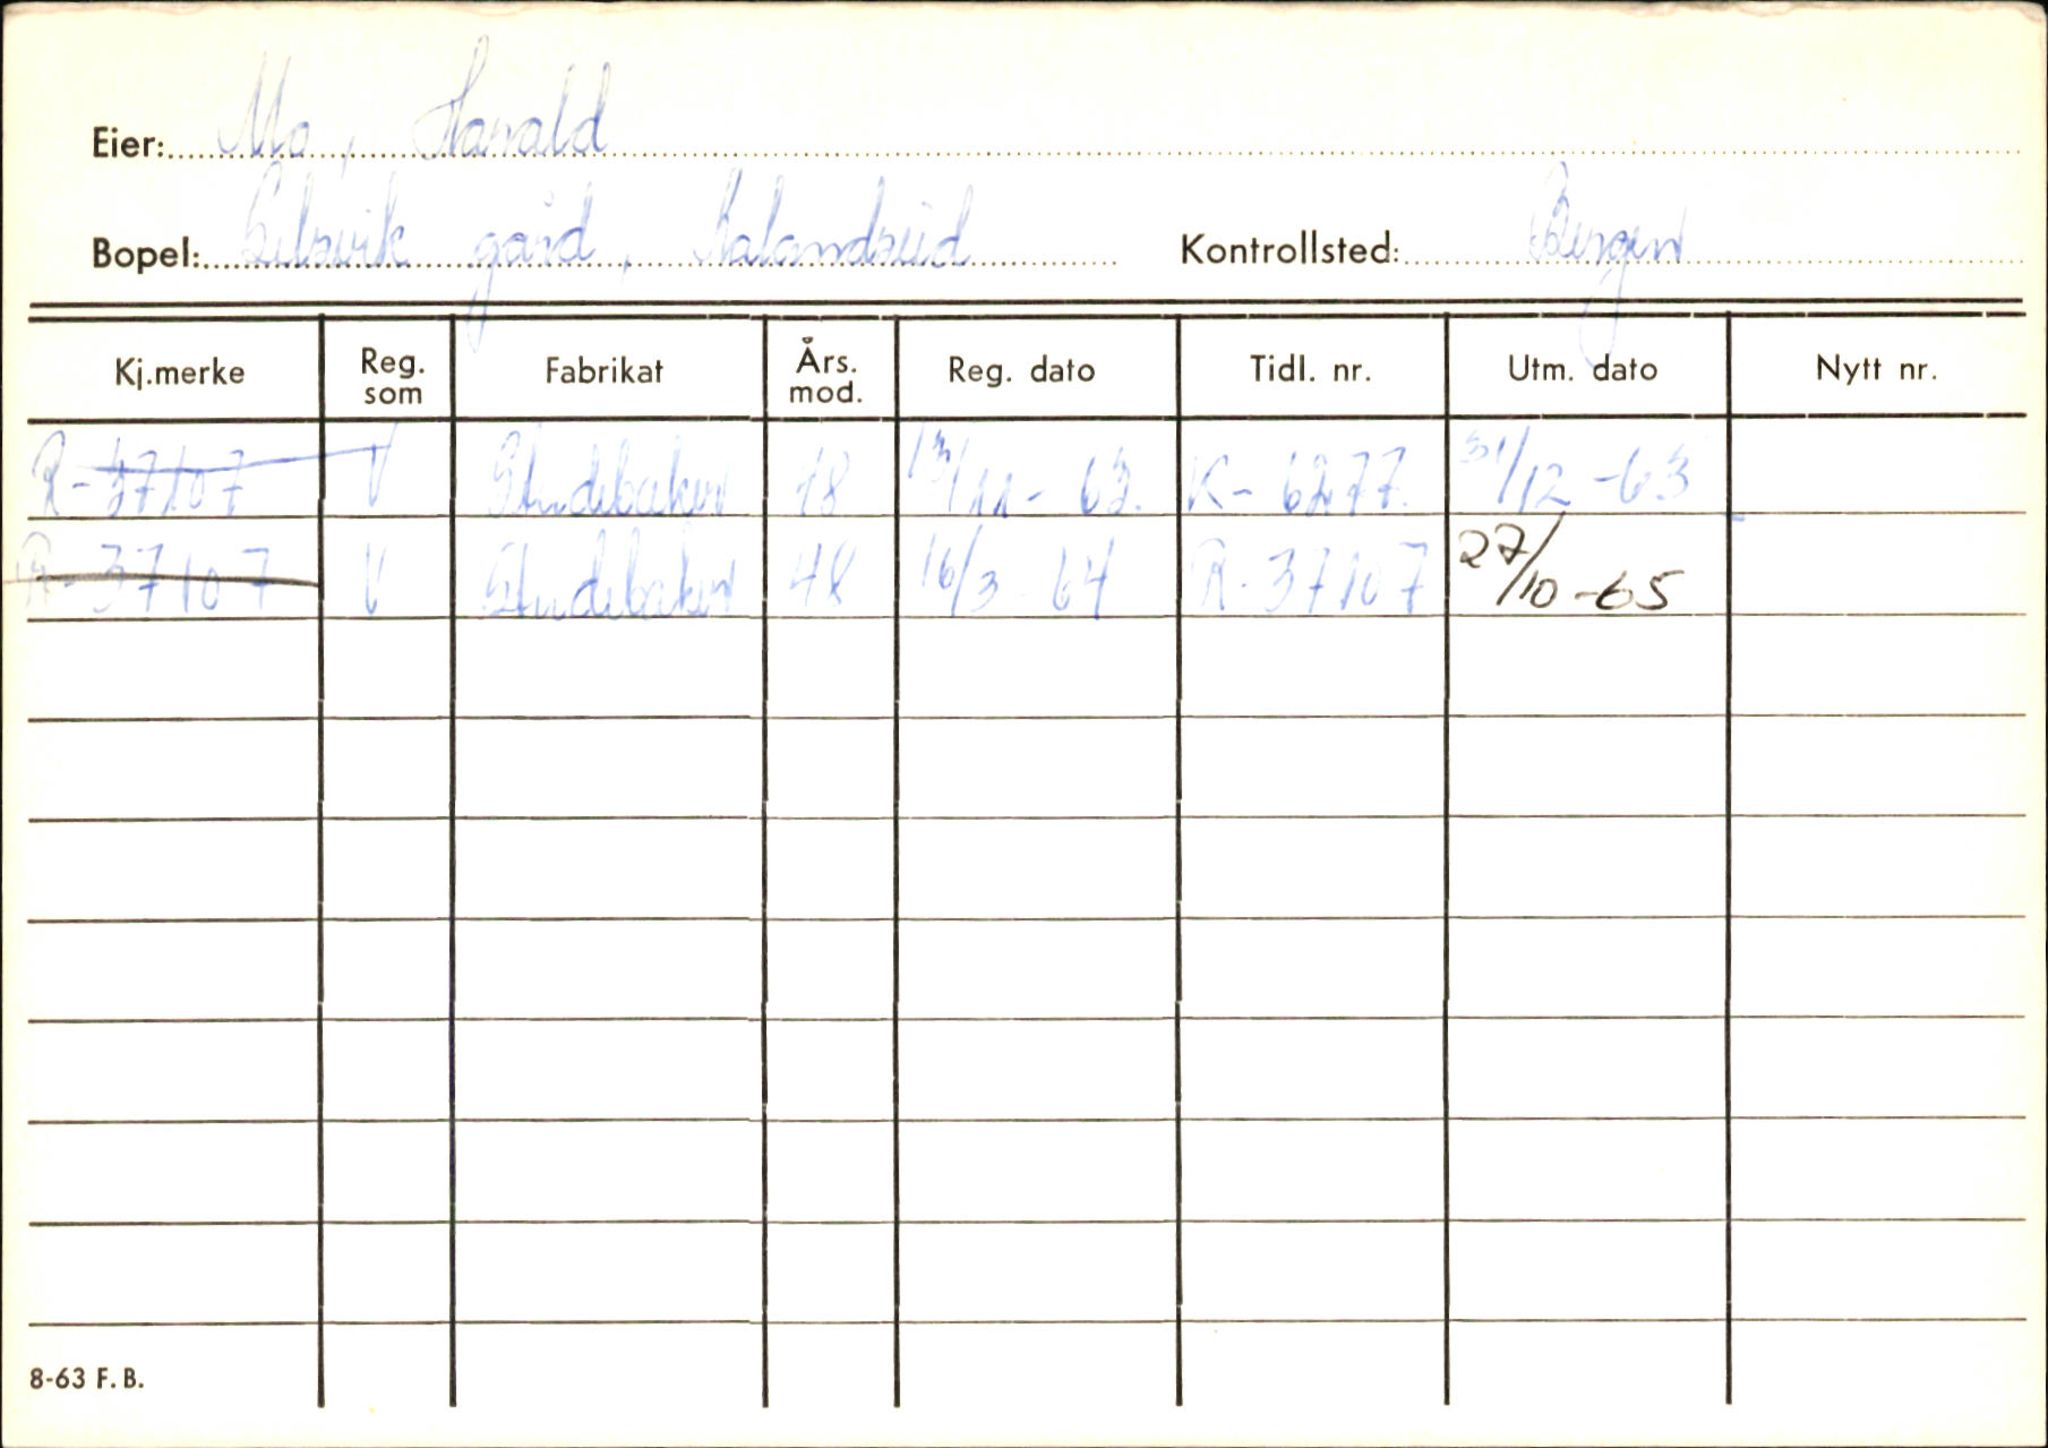 Eier: Mo, Harald
Bopel: gård, Kalandseid Kontrollsted: Bergen
Kj.merke Reg. som Fabrikat Års. mod. Reg. dato Tidl. nr. Utm. dato Nytt nr.
R-37107 V Studebaker 48 13/11-63. K-6277. 31/12-63
R-37107 V Studebaker 48 16/3-64 R-37107 27/10-65
8-63 F.B.